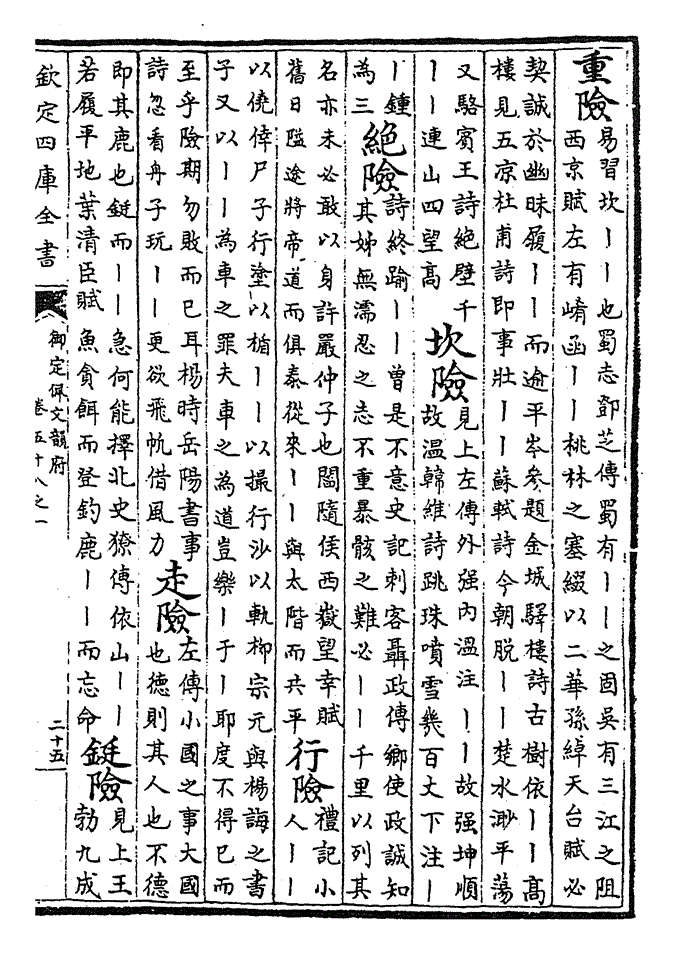 重險 易習坎丨丨也蜀志鄧芝傳蜀有丨丨之固吳有三江之阻
西京賦左有崤函丨丨桃林之塞綴以二華孫綽天台賦必
契誠於幽昧履丨丨而逾平岑參題金城驛樓詩古樹依丨丨高
樓見五凉杜甫詩即事壯丨丨蘇軾詩今朝脱丨丨楚水渺平蕩
又駱賓王詩絶壁千
丨丨連山四望高
坎險 見上左傳外强内溫注丨丨故强坤順
故温韓維詩跳珠噴雪幾百丈下注丨
丨鍾
為三
絶險 詩終踰丨丨曾是不意史記刺客聶政傳鄉使政誠知
其姊無濡忍之志不重暴骸之難必丨丨千里以列其
名亦未必敢以身許嚴仲子也閻隨侯西嶽望幸賦
舊日隘途將帝道而俱泰從來丨丨與太階而共平
行險 禮記小
人丨丨
以僥倖尸子行塗以楯丨丨以撮行沙以軌柳宗元與楊誨之書
子又以丨丨為車之罪夫車之為道豈樂丨于丨耶度不得已而
至乎險期勿敗而已耳楊時岳陽書事
詩忽看舟子玩丨丨更欲飛帆借風力
走險 左傳小國之事大國
也德則其人也不德
即其鹿也鋌而丨丨急何能擇北史獠傳依山丨丨
若履平地葉清臣賦魚貪餌而登釣鹿丨丨而忘命
鋌險 見上王
勃九成
欽定四庫全書
御定佩文韻府
卷五十八之一
二十五